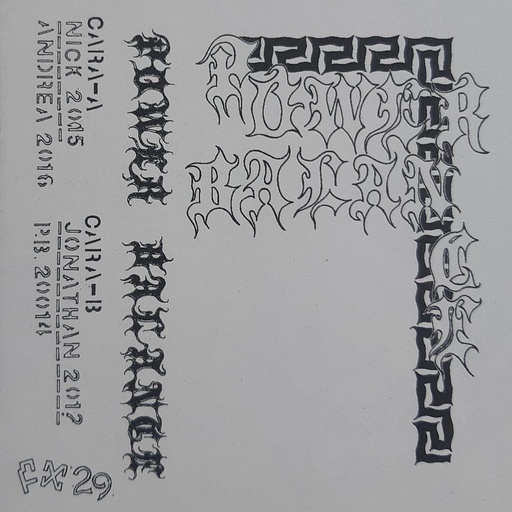 POWER
BALANCE
POWER BALANCE
CARA-A
NICK 2015
ANDREA 2016
CARA-B
JONATHAN 2012
P.B. 2014
FX 29